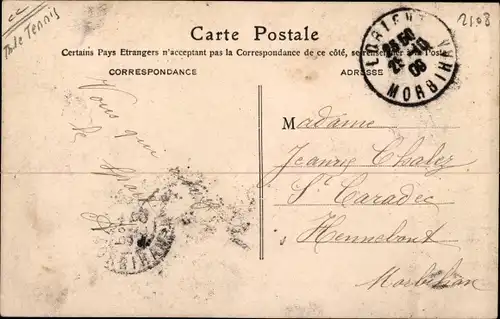 Table Tennis
2108
Carte Postale
Certains Pays Etrangers n'acceptant pas la Correspondance de ce côté, se renseigner à la Poste
CORRESPONDANCE
ADRESSE
LORIENT
25 -10
06
MORBIHAN
Vous qui
Madame
Jeanne Chalez
St Caradec
Hennebont
Morbihan
MORBIHAN